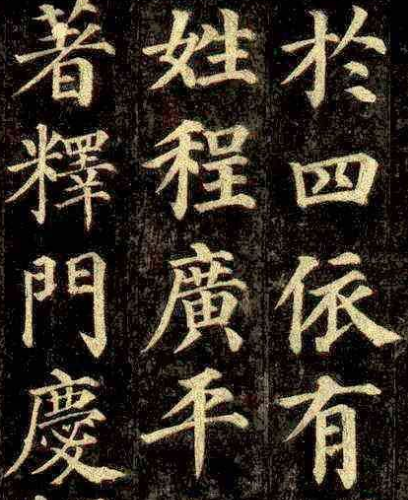 於四依有
姓程廣平
著釋門慶